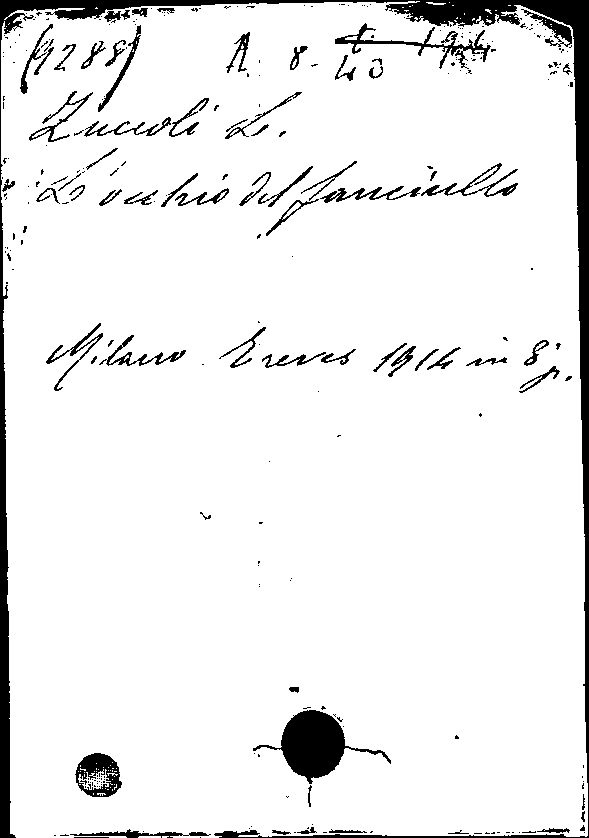 (9288) A. 8. 40
Zuccoli L.
L'occhio del fanciullo
Milano Treves 1914 in 8° p.